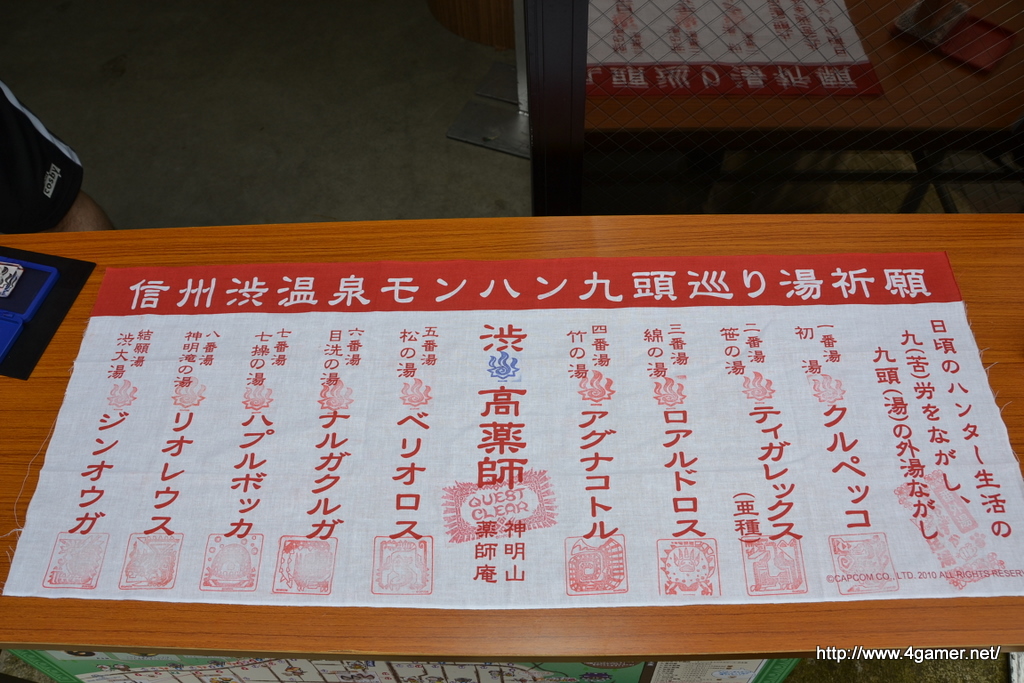 信州渋温泉モンハン九頭巡り湯祈願
日頃のハンター生活の
九(苦)労をながし、
九頭(湯)の外湯ながし
一番湯
初湯
クルペッコ
二番湯
笹の湯
ティガレックス
(亜種)
三番湯
綿の湯
ロアルドロス
四番湯
竹の湯
アグナコトル
渋
高薬師
神明山
薬師庵
QUEST
CLEAR
五番湯
松の湯
ベリオロス
六番湯
目洗の湯
ナルガクルガ
七番湯
七操の湯
ハプルボッカ
八番湯
神明滝の湯
リオレウス
結願湯
渋大湯
ジンオウガ
©CAPCOM CO., LTD. 2010 ALL RIGHTS RESER
cosby
九頭巡り湯祈願
http://www.4gamer.net/